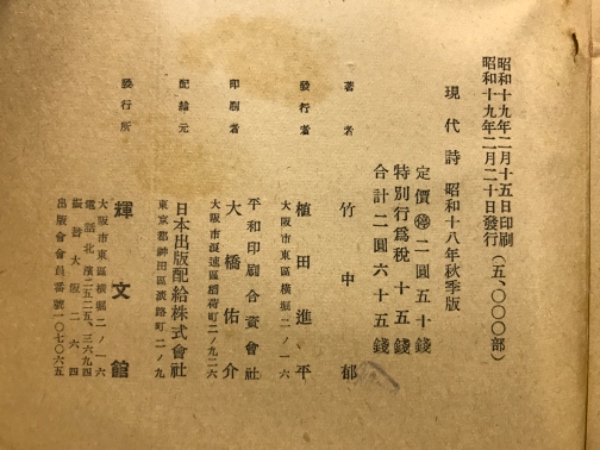 昭和十九年二月十五日印刷
昭和十九年二月二十日發行(五、〇〇〇部)
現代詩 昭和十八年秋季版
定價㊡二圓五十錢
特別行爲稅 十五錢
合計二圓六十五錢
著者 竹中郁
發行者 植田進平
大阪市東區横堀二ノ一六
印刷者 平和印刷合資會社
大橋佑介
大阪市浪速區稻荷町二ノ九二六
配給元 日本出版配給株式會社
東京都神田區淡路町二ノ九
發行所 輝文館
大阪市東區横堀二ノ一六
電話北濱二五二五、三六九四
振替大阪二六四
出版會會員番號一〇七〇六五